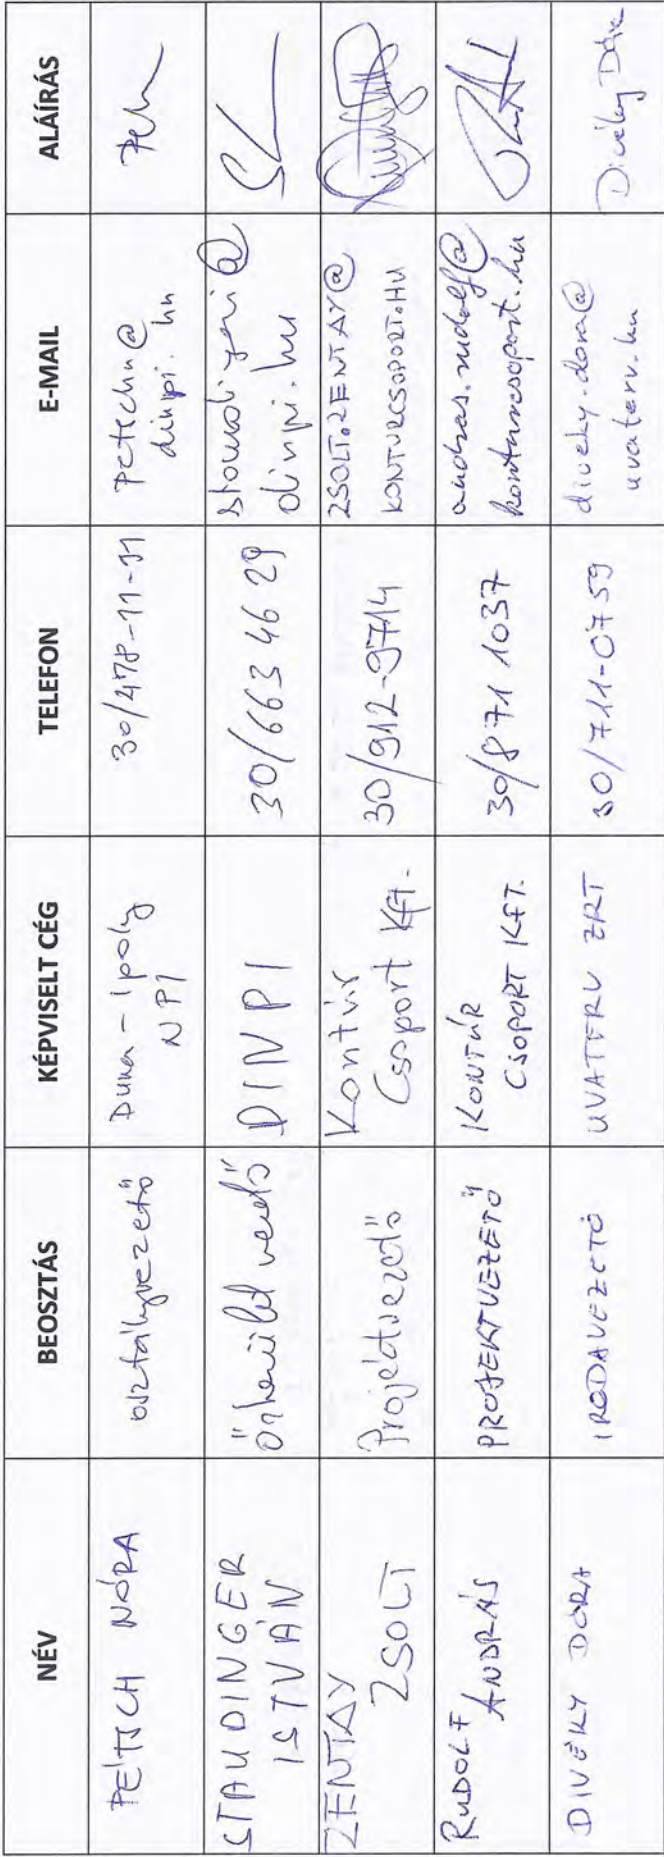 NÉV BEOSZTÁS KÉPVISELT CÉG TELEFON E-MAIL ALÁÍRÁS
PETSCH NÓRA
osztályvezető
Duna-Ipoly
NPI
petschn@
dinpi.hu
STAUDINGER
ISTVÁN
DINPI
30/663 46 29
dinpi.hu
ZENTAY
ZSOLT
Projektvezető
Kontúr
Csoport Kft.
30/912-9714
ZSOLT.ZENTAY@
KONTURCSOPORT.HU
RUDOLF
ANDRÁS
PROJEKTVEZETŐ
KONTÚR
CSOPORT KFT.
30/871 1037
andras.rudolf@
konturcsoport.hu
DIVÉKY DÓRA
IRODAVEZETŐ
UVATERV ZRT
30/711-0759
diveky.dora@
uvaterv.hu
Divéky Dóra